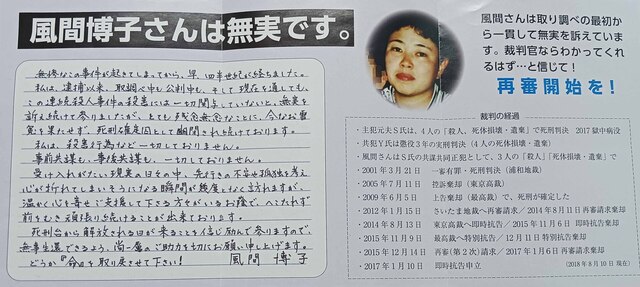 風間博子さんは無実です。
無惨なこの事件が起きてしまってから、早、四半世紀が経ちました。
私は、逮捕以来、取調べ中も公判中も、そして現在を通しても、
この連続殺人事件の殺害には一切関与していないと、無実を
訴え続けて参りましたが、とても残念無念なことに、今なお雪
冤を果たせず、死刑確定囚として幽閉され続けております。
私は、殺害行為などしておりません。
事前共謀も、事後共謀も、一切しておりません。
受け入れがたい現実の日々の中、先行きの不安や孤独を考え
心が折れてしまいそうになる瞬間が幾度となく訪れますが、
温かく心を寄せご支援して下さる方々がいるお蔭で、へこたれず
前をむき頑張り続けることが出来ております。
死刑台から解放される日が来ることを信じ励んで参りますので、
無事生還できるよう、尚一層のご助力を切にお願い申し上げます。
どうか『命』を取り戻させて下さい！
風間 博子
風間さんは取り調べの最初か
ら一貫して無実を訴えていま
す。裁判官ならわかってくれ
るはず…と信じて！
再審開始を！
裁判の経過
・主犯元夫S氏は、4人の「殺人、死体損壊・遺棄」で死刑判決 2017獄中病没
・共犯Y氏は懲役3年の実刑判決（4人の死体損壊・遺棄）
・風間さんはS氏の共謀共同正犯として、3人の「殺人」「死体損壊・遺棄」で
・2001年3月21日 一審有罪・死刑判決（浦和地裁）
・2005年7月11日 控訴棄却（東京高裁）
・2009年6月5日 上告棄却（最高裁）で、死刑が確定した
・2012年1月15日 さいたま地裁へ再審請求／2014年8月11日再審請求棄却
・2014年8月13日 東京高裁へ即時抗告／2015年11月6日 即時抗告棄却
・2015年11月9日 最高裁へ特別抗告／12月11日特別抗告棄却
・2015年12月14日 再審（第2次）請求／2017年1月6日 再審請求棄却
・2017年1月10日 即時抗告申立
（2018年8月10日 現在）